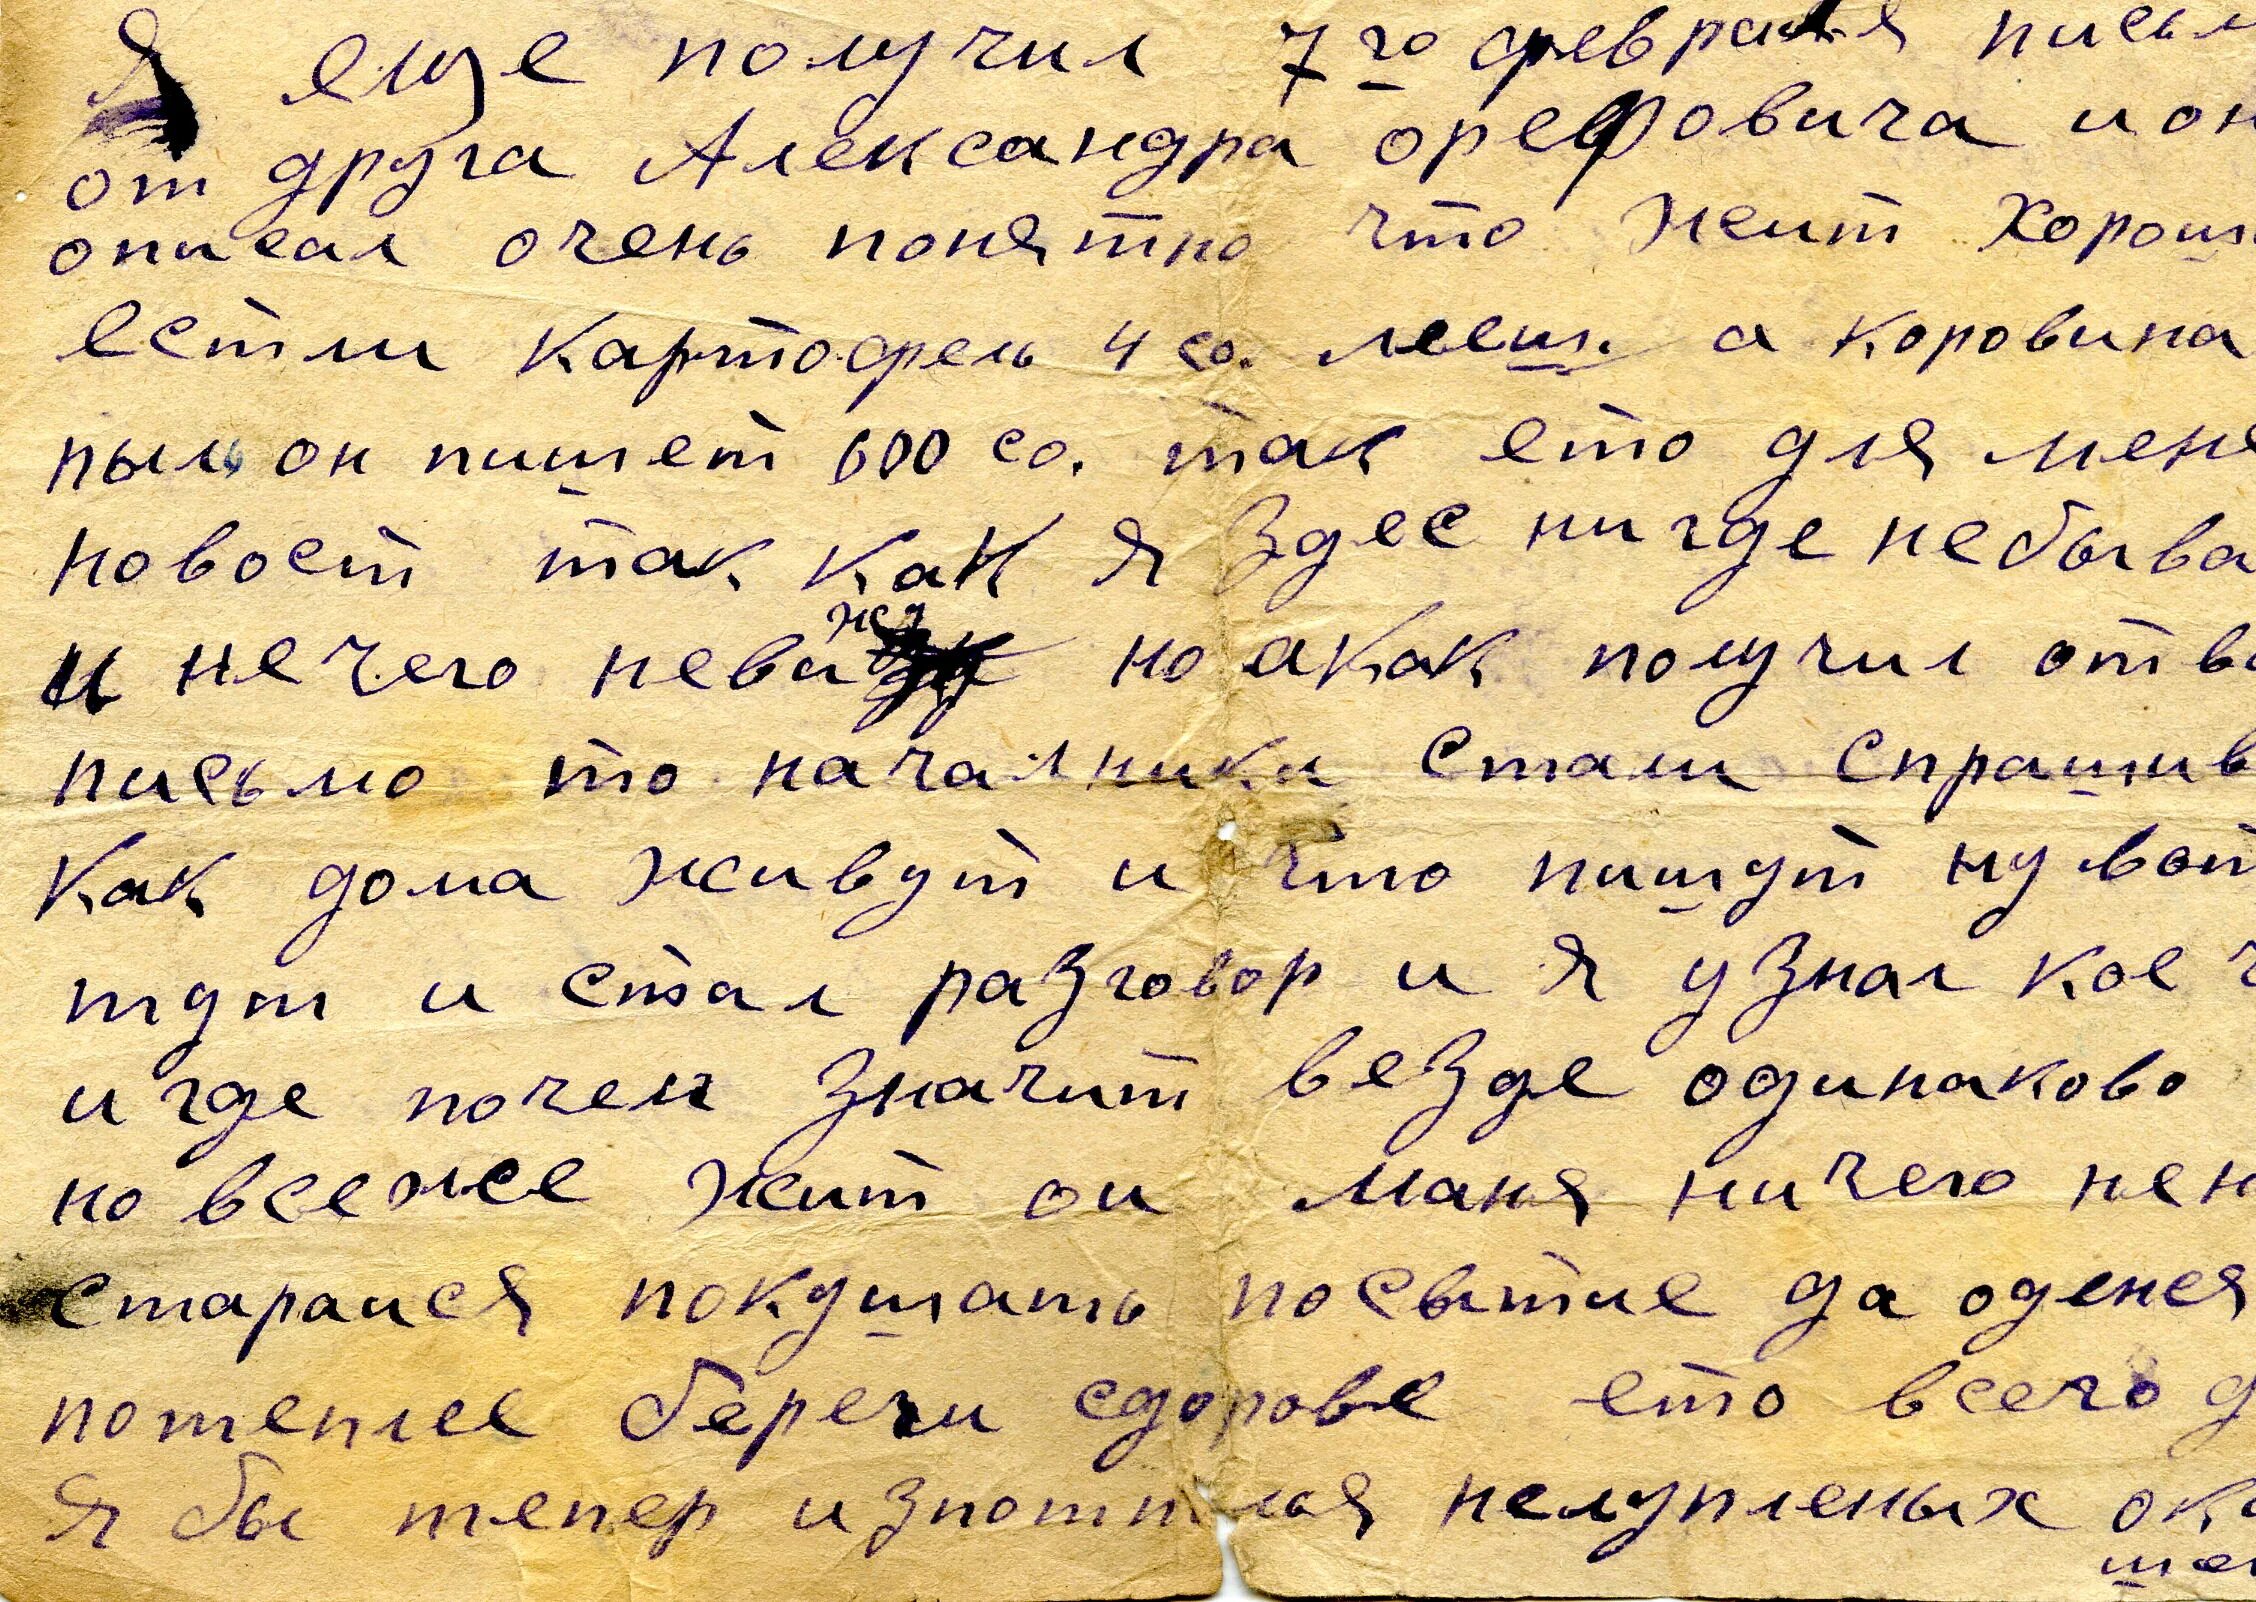 Я еще получил 7го февраля письм
от друга Александра орефовича и он
описал очень понятно что жит хорош
естли картофель 4 со. а коровина
пыль он пишет 600 со. так ето для меня
новост так как я здес ни где небыва
и не чегоневижу но акак получил отве
письмо то началники стали спрашив
как дома живут и что пишут ну вот
тут и стал разговор и я узнал кое ч
и где почем значит везде одинаково
но всеже жит ои маня ничего нен
старайся покушать посытие да оденся
потеплее береги сдоровье ето всего д
Я бы тепер нелупленых ока
шен